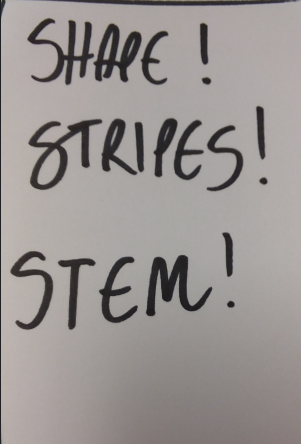 SHAPE!
STRIPES!
STEM!